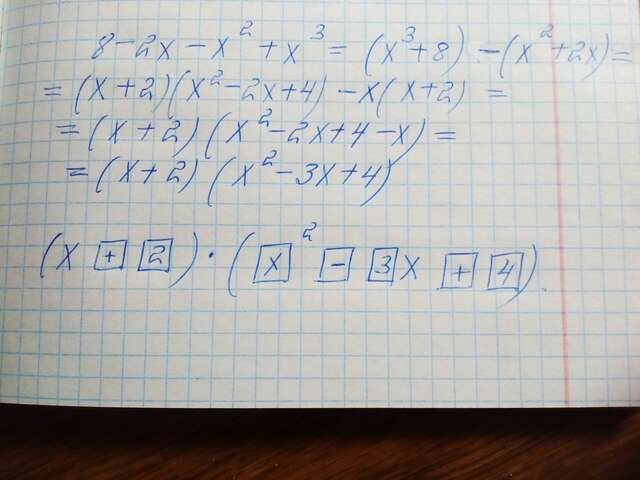 8-2x-x²+x³=(x³+8)-(x²+2x)=
=(x+2)(x²-2x+4)-x(x+2)=
=(x+2)(x²-2x+4-x)=
=(x+2)(x²-3x+4)
(x + 2)·(x² - 3x + 4).